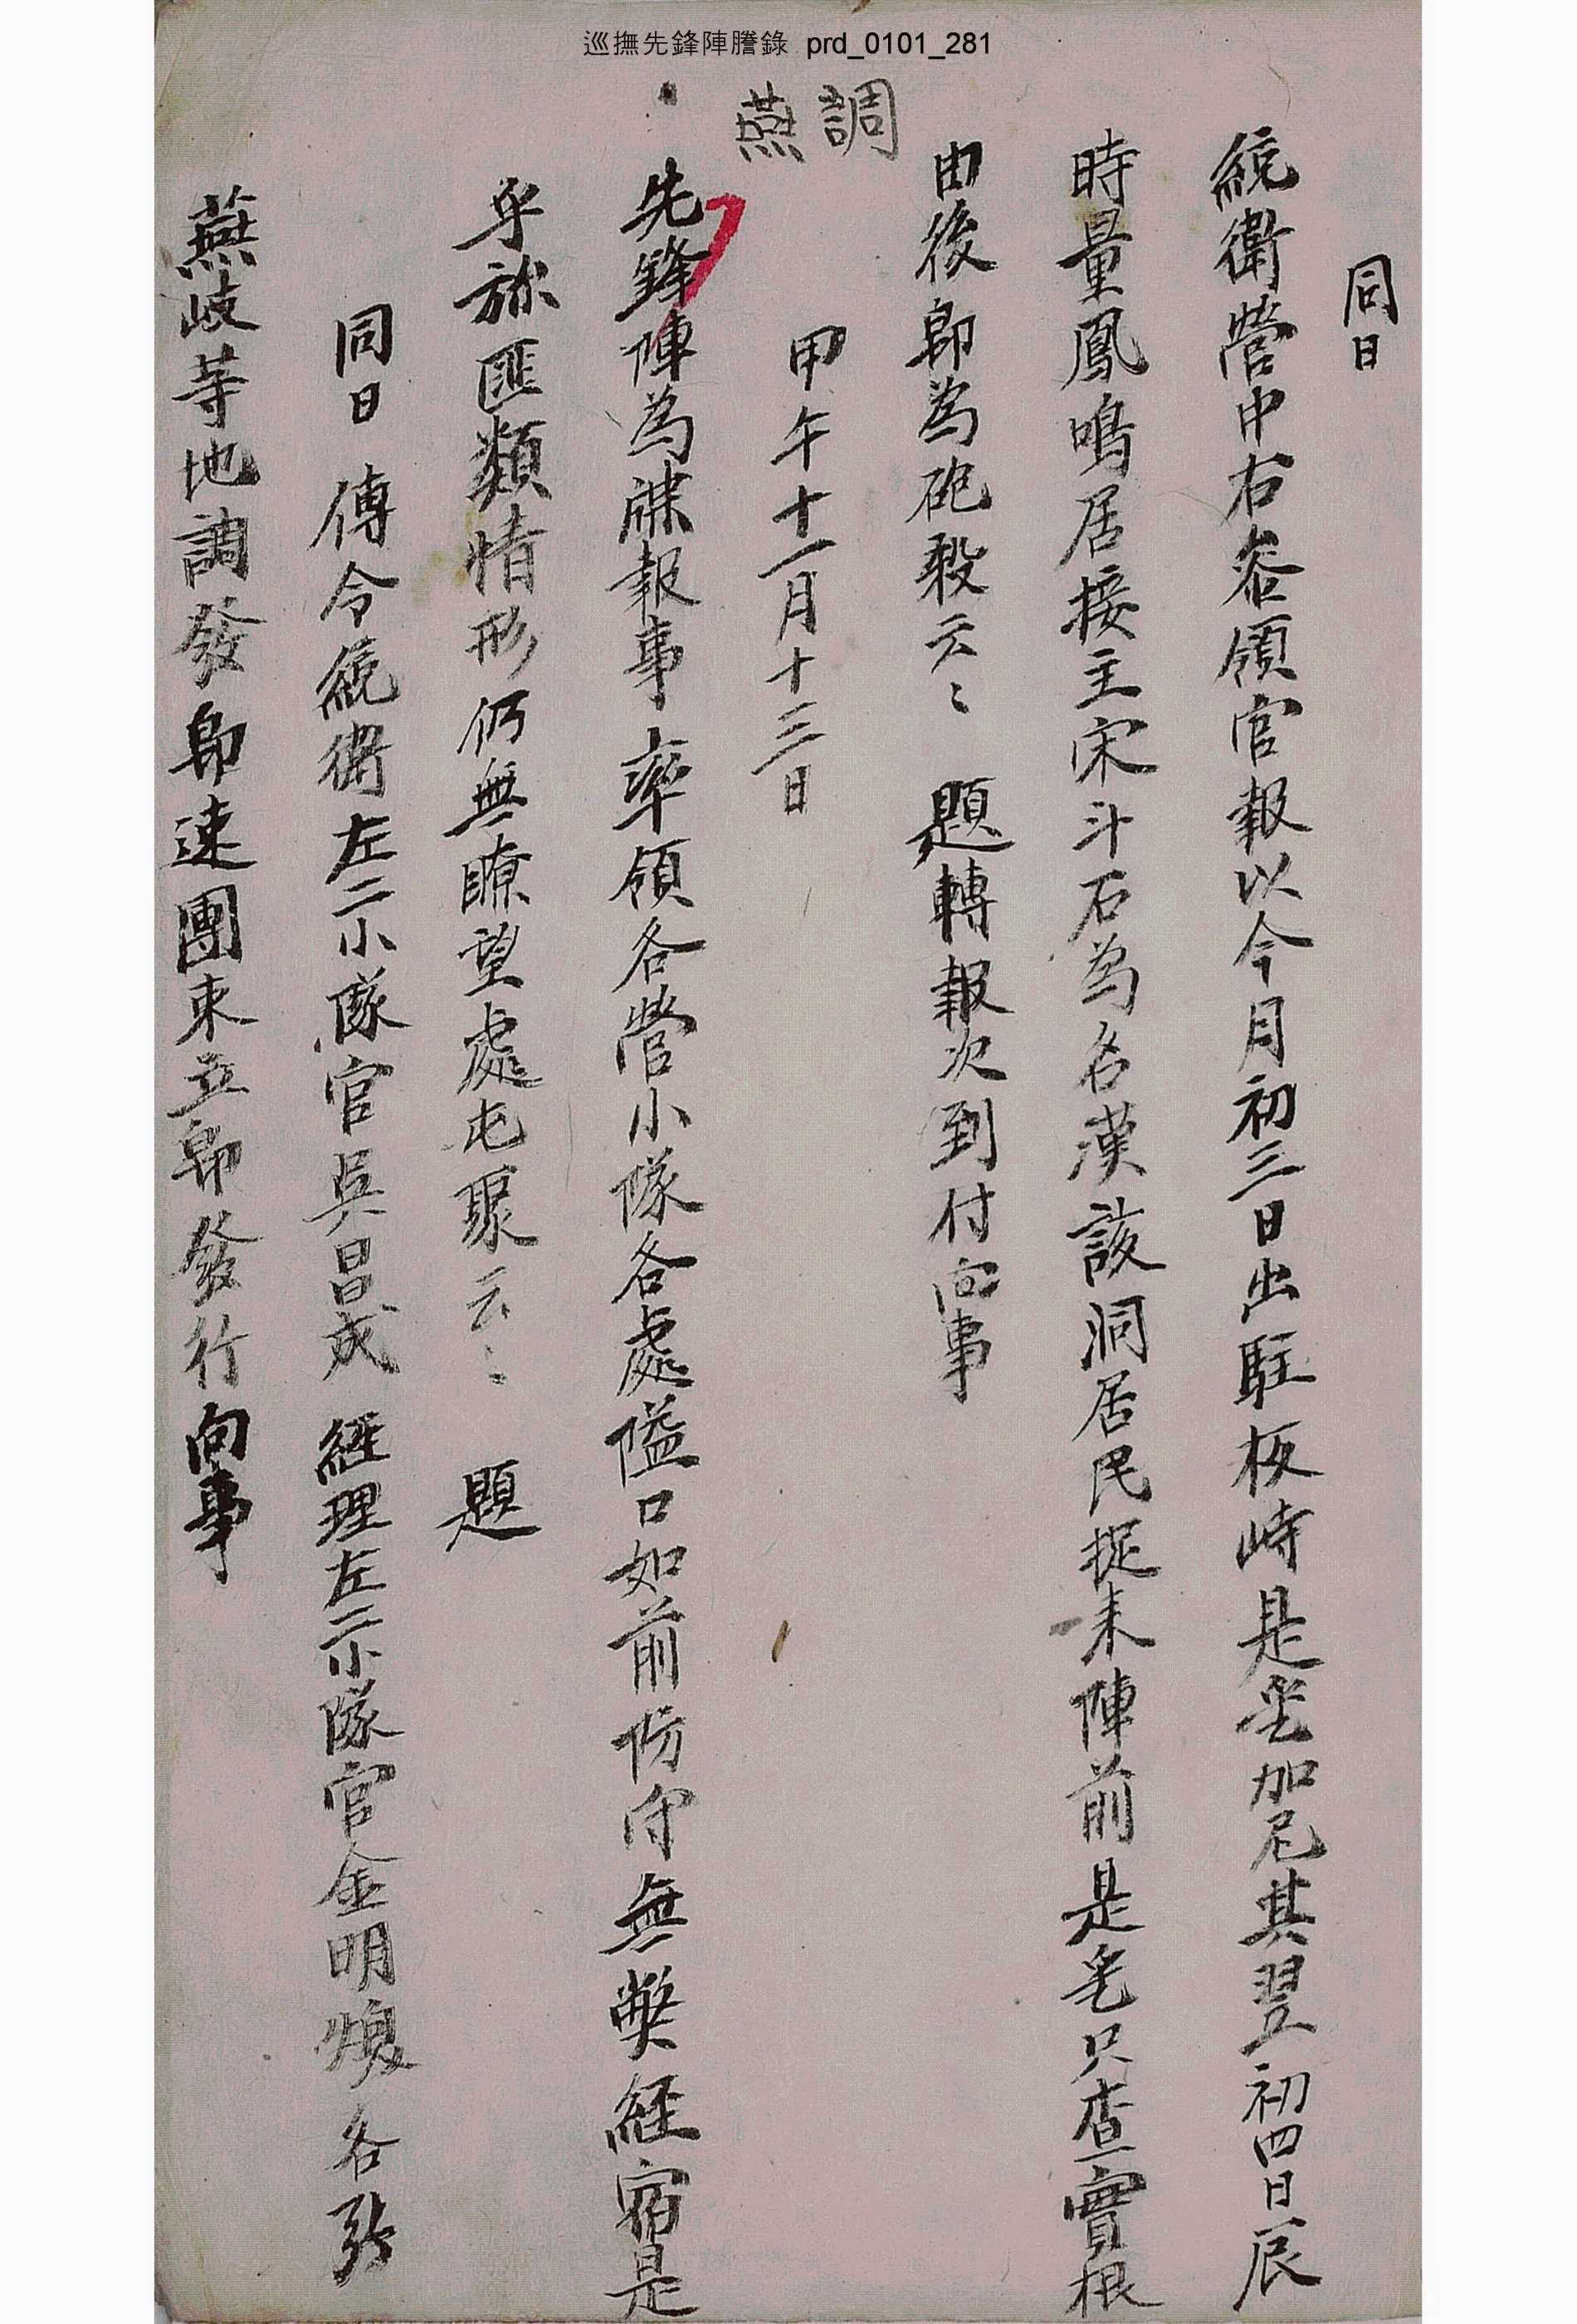 巡撫先鋒陣謄錄 prd_0101_281
同日
統衛營中右叅領官報以今月初三日出駐板峙是乎加尼其翌初四日辰
時量鳳鳴居接主宋斗石爲名漢該洞居民捉來陣前是乎只查實根
由後卽爲砲殺云〻 題轉報次到付向事
調
燕
甲午十一月十三日
先鋒陣爲牒報事 率領各營小隊各處隘口如前防守無獘経宿是
乎旀匪類情形仍無瞭望處屯聚云〻 題
同日 傳令統衛左二小隊官吳昌成 經理左二小隊官金明煥各
蕪岐等地調發卽速團束立卽發行向事